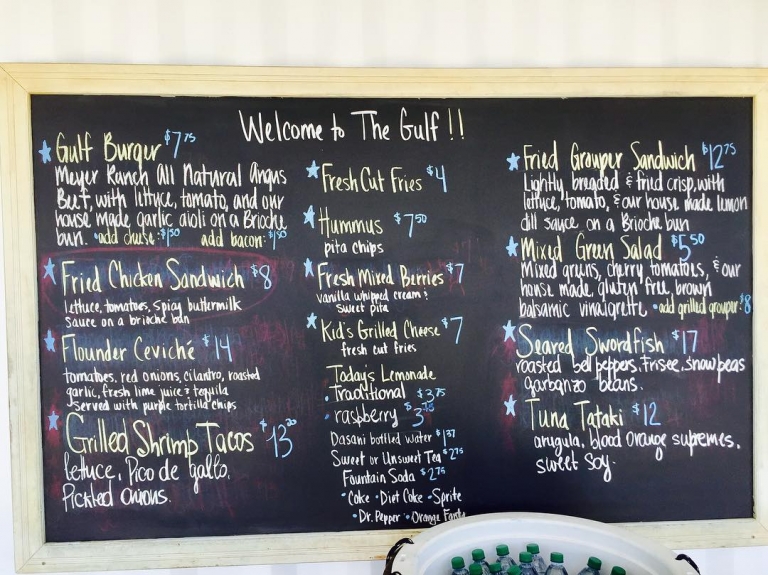 Welcome to The Gulf!!
Gulf Burger $7.75
Meyer Ranch All Natural Angus
Beef, with lettuce, tomato, and our
house made garlic aioli on a Brioche
bun. •add cheese: $1.50 add bacon: $1.50
Fried Chicken Sandwich $8
lettuce, tomatoes, spicy buttermilk
sauce on a brioche bun
Flounder Ceviché $14
tomatoes, red onions, cilantro, roasted
garlic, fresh lime juice & tequila
served with purple tortilla chips
Grilled Shrimp Tacos $13
lettuce, Pico de gallo,
Pickled onions.
Fresh Cut Fries $4
Hummus $7.50
pita chips
Fresh Mixed Berries $7
vanilla whipped cream &
sweet pita
Kid's Grilled Cheese $7
fresh cut fries
Today's Lemonade
•Traditional $3.75
•raspberry
Dasani bottled water $1.37
Sweet or Unsweet Tea $2.75
Fountain Soda $2.75
•Coke •Diet Coke •Sprite
•Dr. Pepper •Orange Fanta
Fried Grouper Sandwich $12.75
Lightly breaded & fried crisp, with
lettuce, tomato, & our house made lemon
dill sauce on a Brioche bun
Mixed Green Salad $5.50
Mixed greens, cherry tomatoes, & our
house made, gluten free, brown
balsamic vinaigrette •add grilled grouper: $8
Seared Swordfish $17
roasted bell peppers, frisee, snow peas
garbanzo beans.
Tuna Tataki $12
arugula, blood orange supremes,
sweet soy.